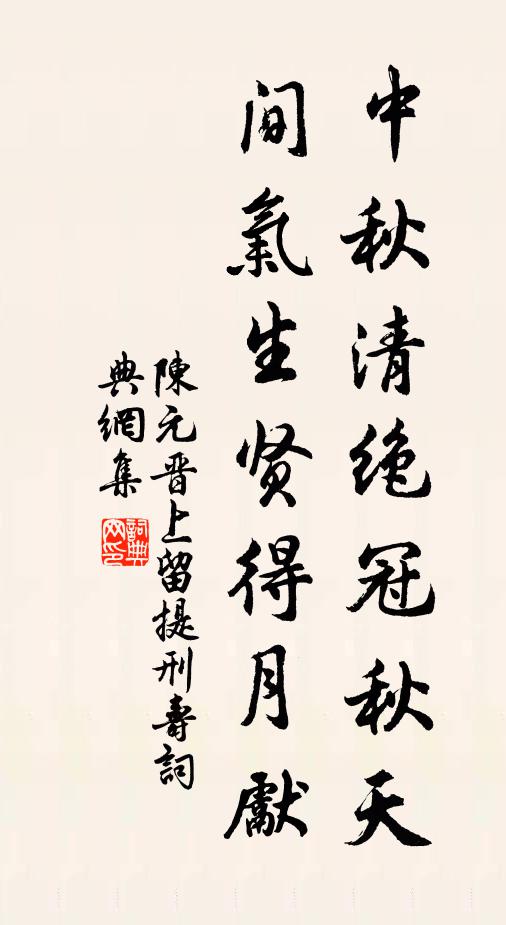 中秋清绝冠秋天
间氣生贤得月獻
陳元晋上留提刑壽詞
典網集
詞典网印